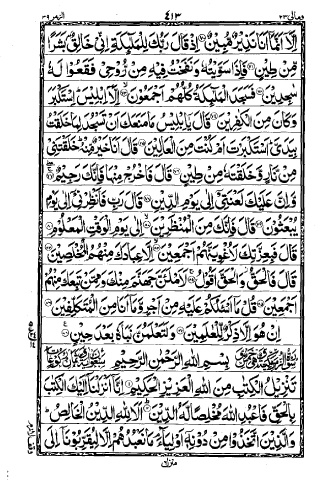 وما لى ٢٣ ٤١٣ ص ٣٨
اِلَّا اَنَّمَا اَنَا نَذِيْرٌ مُّبِيْنٌ اِذْ قَالَ رَبُّكَ لِلْمَلٰٓئِكَةِ اِنِّيْ خَالِقٌ بَشَرًا
مِّنْ طِيْنٍ فَاِذَا سَوَّيْتُهٗ وَنَفَخْتُ فِيْهِ مِنْ رُّوْحِيْ فَقَعُوْا لَهٗ
سٰجِدِيْنَ فَسَجَدَ الْمَلٰٓئِكَةُ كُلُّهُمْ اَجْمَعُوْنَ اِلَّآ اِبْلِيْسَ اِسْتَكْبَرَ
وَكَانَ مِنَ الْكٰفِرِيْنَ قَالَ يٰٓاِبْلِيْسُ مَا مَنَعَكَ اَنْ تَسْجُدَ لِمَا خَلَقْتُ
بِيَدَيَّ اَسْتَكْبَرْتَ اَمْ كُنْتَ مِنَ الْعَالِيْنَ قَالَ اَنَا خَيْرٌ مِّنْهُ خَلَقْتَنِيْ
مِنْ نَّارٍ وَّخَلَقْتَهٗ مِنْ طِيْنٍ قَالَ فَاخْرُجْ مِنْهَا فَاِنَّكَ رَجِيْمٌ
وَّاِنَّ عَلَيْكَ لَعْنَتِيْٓ اِلٰى يَوْمِ الدِّيْنِ قَالَ رَبِّ فَاَنْظِرْنِيْٓ اِلٰى يَوْمِ
يُبْعَثُوْنَ قَالَ فَاِنَّكَ مِنَ الْمُنْظَرِيْنَ اِلٰى يَوْمِ الْوَقْتِ الْمَعْلُوْمِ
قَالَ فَبِعِزَّتِكَ لَاُغْوِيَنَّهُمْ اَجْمَعِيْنَ اِلَّا عِبَادَكَ مِنْهُمُ الْمُخْلَصِيْنَ
قَالَ فَالْحَقُّ وَالْحَقَّ اَقُوْلُ لَاَمْلَئَنَّ جَهَنَّمَ مِنْكَ وَمِمَّنْ تَبِعَكَ مِنْهُمْ
اَجْمَعِيْنَ قُلْ مَآ اَسْئَلُكُمْ عَلَيْهِ مِنْ اَجْرٍ وَّمَآ اَنَا مِنَ الْمُتَكَلِّفِيْنَ
اِنْ هُوَ اِلَّا ذِكْرٌ لِّلْعٰلَمِيْنَ وَلَتَعْلَمُنَّ نَبَاَهٗ بَعْدَ حِيْنٍ
بِسْمِ اللهِ الرَّحْمٰنِ الرَّحِيْمِ
تَنْزِيْلُ الْكِتٰبِ مِنَ اللهِ الْعَزِيْزِ الْحَكِيْمِ اِنَّآ اَنْزَلْنَآ اِلَيْكَ الْكِتٰبَ
بِالْحَقِّ فَاعْبُدِ اللهَ مُخْلِصًا لَّهُ الدِّيْنَ اَلَا لِلّٰهِ الدِّيْنُ الْخَالِصُ
وَالَّذِيْنَ اتَّخَذُوْا مِنْ دُوْنِهٖٓ اَوْلِيَآءَ مَا نَعْبُدُهُمْ اِلَّا لِيُقَرِّبُوْنَآ اِلَى
منزل